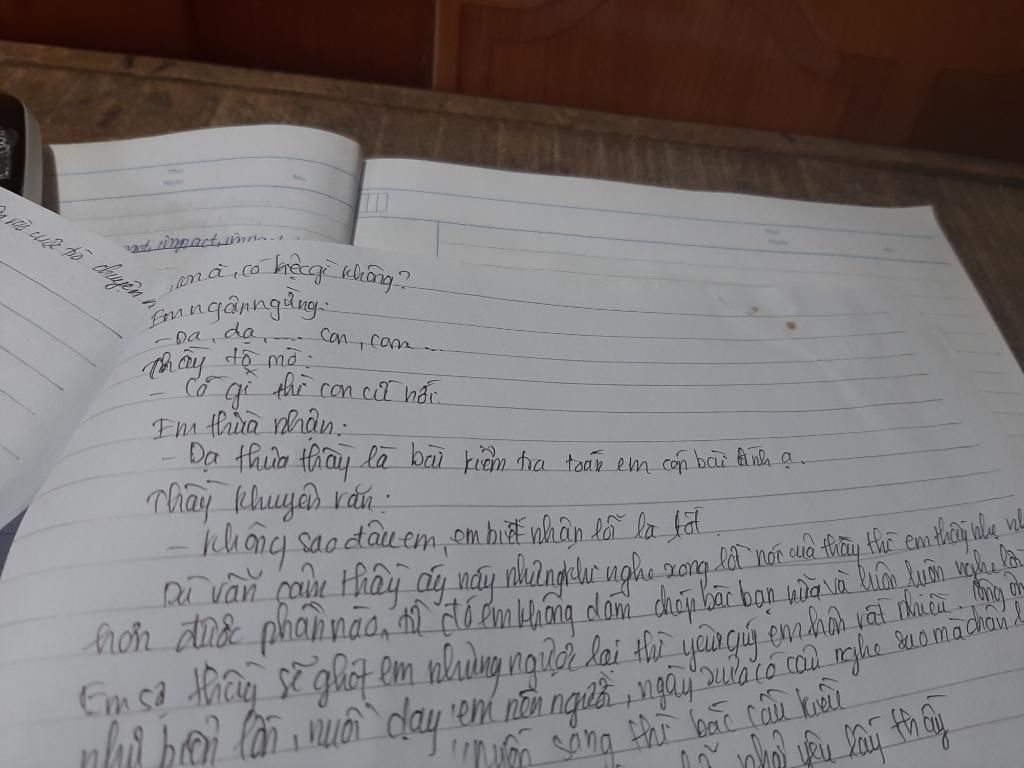 và cuộc trò chuyện
impact,
con à, có việc gì không?
Em ngần ngừng:
- Dạ, dạ,.... con, con...
Thầy tò mò:
- Có gì thì con cứ nói.
Em thừa nhận:
- Dạ thưa thầy là bài kiểm tra toán em cóp bài Anh ạ.
Thầy khuyên răn:
- Không sao đâu em, em biết nhận lỗi là tốt
Dù vẫn cảm thấy áy náy nhưng khi nghe xong lời nói của thầy thì em thấy nhẹ
hơn được phần nào, từ đó em không dám chép bài bạn nữa và luôn luôn nghe lời
Em sợ thầy sẽ ghét em nhưng ngược lại thì yêu quý em hơn rất nhiều. Công ơn
như biển lớn, nuôi dạy em nên người, ngày xưa có câu nghe sao mà chân
muốn sang thì bắc cầu kiều
phải yêu lấy thầy